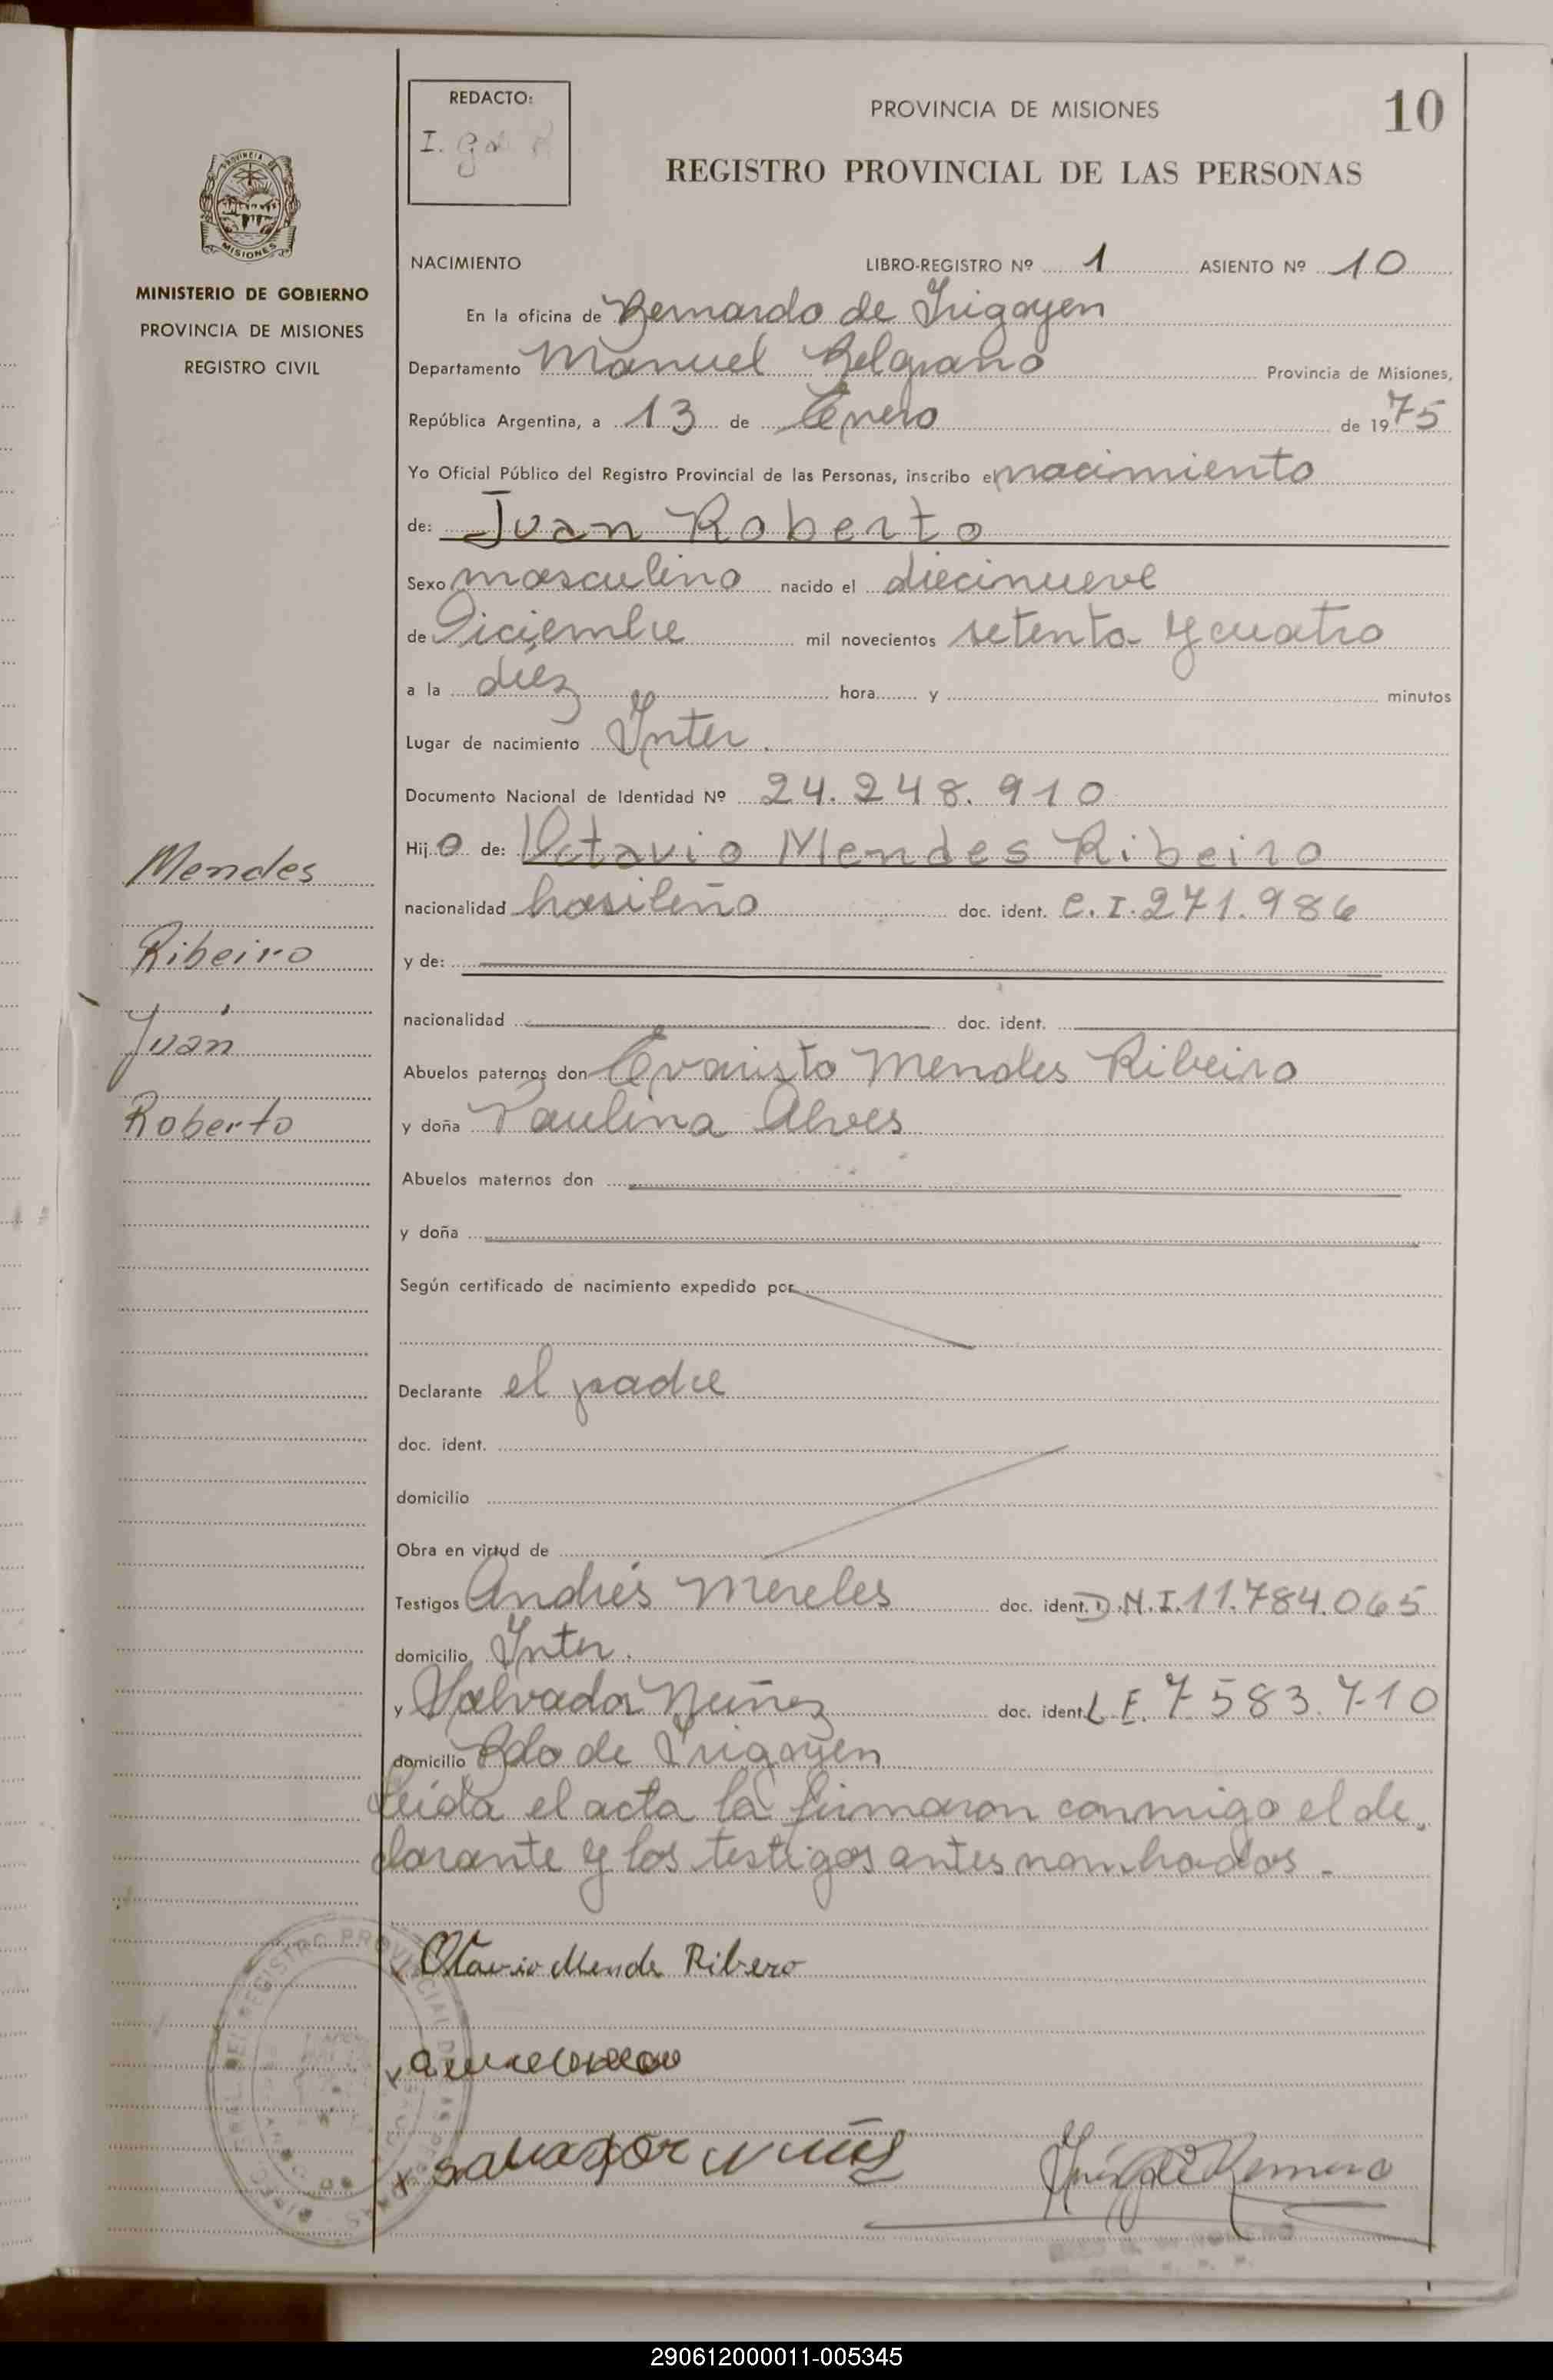 REDACTO:
PROVINCIA DE MISIONES
10
REGISTRO PROVINCIAL DE LAS PERSONAS
MISIONES
MINISTERIO DE GOBIERNO
PROVINCIA DE MISIONES
REGISTRO CIVIL
NACIMIENTO LIBRO-REGISTRO Nº 1 ASIENTO Nº 10
En la oficina de Bernardo de Irigoyen
Departamento Manuel Belgrano Provincia de Misiones,
República Argentina, a 13 de Enero de 1975
Yo Oficial Público del Registro Provincial de las Personas, inscribo el nacimiento
de: Juan Roberto
Sexo masculino nacido el diecinueve
de Diciembre mil novecientos setenta y cuatro
a la diéz hora y minutos
Lugar de nacimiento Inter.
Documento Nacional de Identidad Nº 24.248.910
Hijo de: Octavio Mendes Ribeiro
nacionalidad brasileño doc. ident. C.I.271.986
y de:
nacionalidad doc. ident.
Abuelos paternos don Evaristo Mendes Ribeiro
y doña Paulina Alves
Abuelos maternos don
y doña
Según certificado de nacimiento expedido por
Declarante el padre
doc. ident.
domicilio
Obra en virtud de
Testigos Andrés Mereles doc. ident. D.N.I.11.784.065
domicilio Inter.
y Salvador Nuñez doc. ident. L.E. 7.583.710
domicilio Bdo de Irigoyen
Leída el acta la firmaron conmigo el de
clarante y los testigos antes nombrados.-
Mendes
Ribeiro
Juan
Roberto
Otavio Mende Ribero
salvador nuñes
290612000011-005345